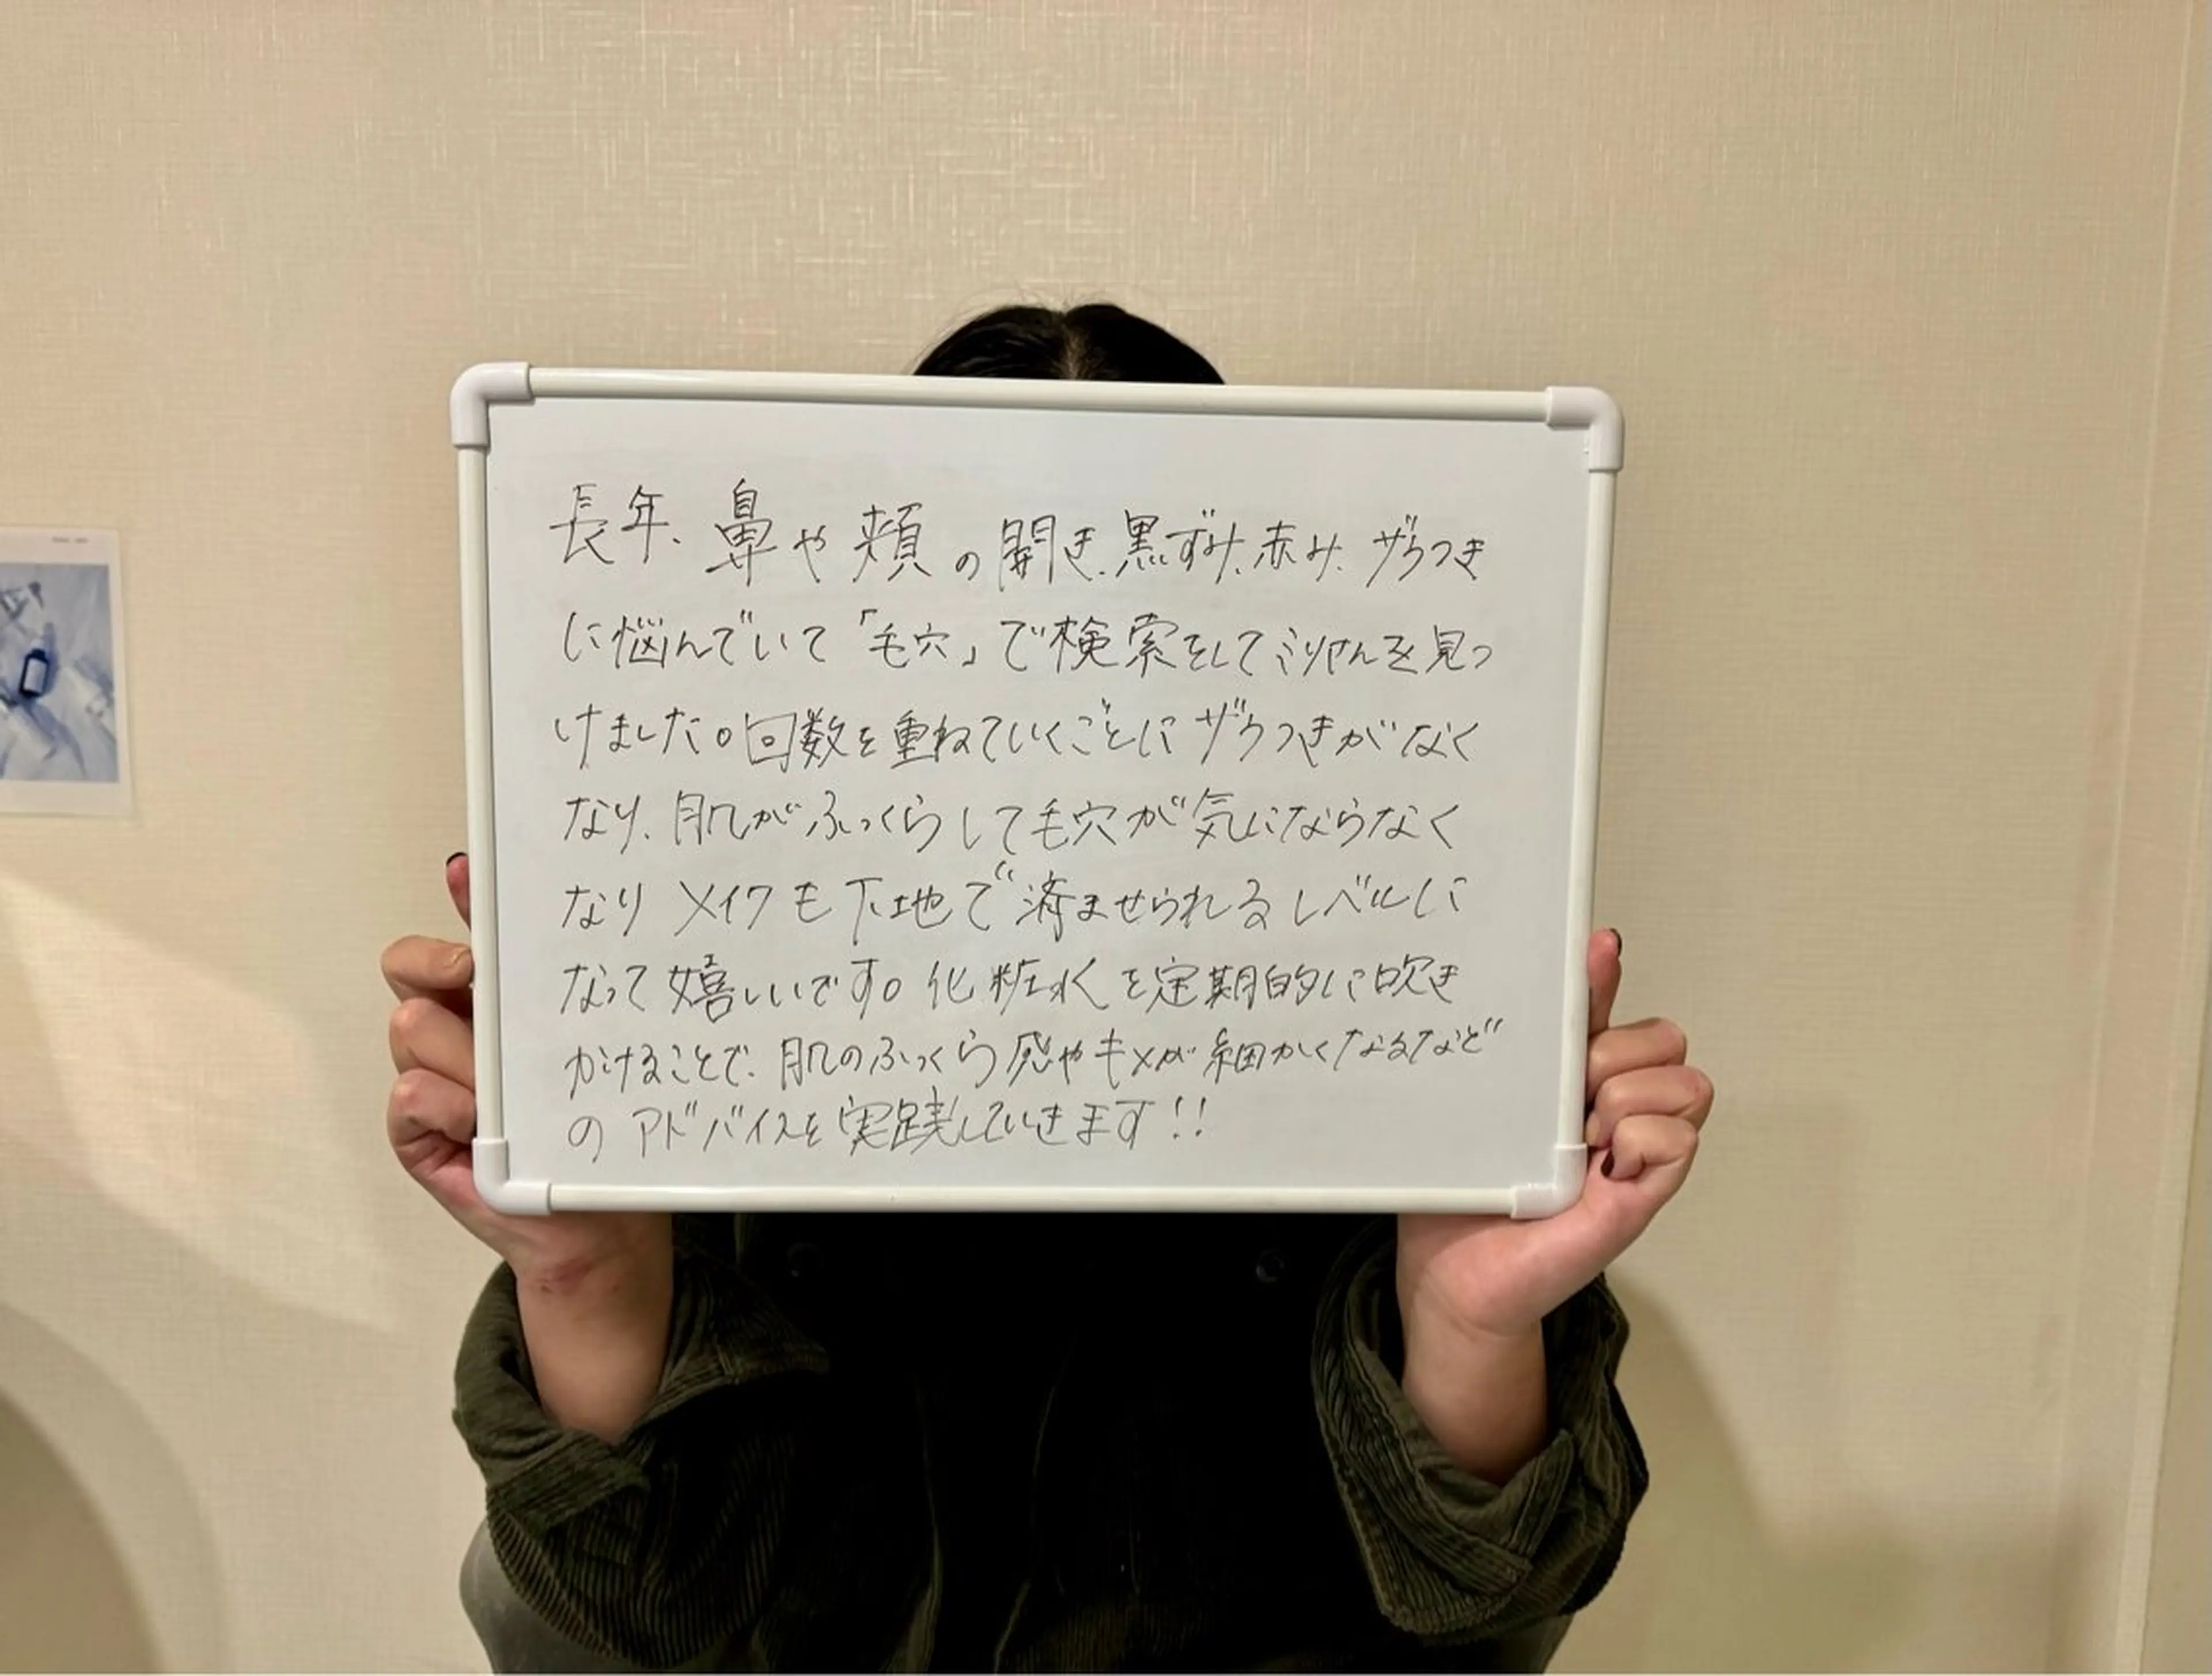 長年、鼻や頬の開き、黒ずみ、赤み、ザラつき
に悩んでいて「毛穴」で検索をしてミリさんを見つ
けました。回数を重ねていくごとにザラつきがなく
なり、肌がふっくらして毛穴が気にならなく
なりメイクも下地で済ませられるレベルに
なって嬉しいです。化粧水を定期的に吹き
かけることで、肌のふっくら感やキメが細かくなるなど
のアドバイスを実践していきます!!